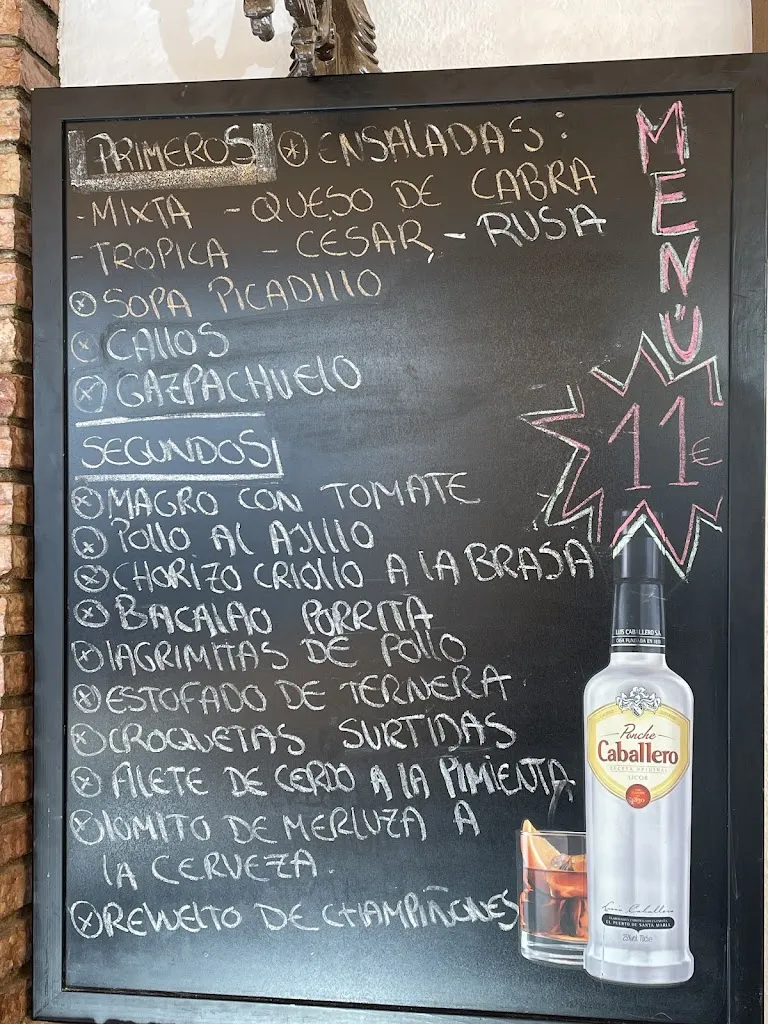 PRIMEROS ⊛ ENSALADAS:
- MIXTA - QUESO DE CABRA
- TROPICA - CESAR, - RUSA
⊗ SOPA PICADILLO
⊗ CALLOS
⊗ GAZPACHUELO
SEGUNDOS
⊗ MAGRO CON TOMATE
⊗ POLLO AL AJILLO
⊗ CHORIZO CRIOLLO A LA BRASA
⊗ BACALAO PORRITA
⊗ LAGRIMITAS DE POLLO
⊗ ESTOFADO DE TERNERA
⊗ CROQUETAS SURTIDAS
⊗ FILETE DE CERDO A LA PIMIENTA
⊗ LOMITO DE MERLUZA A
LA CERVEZA.
⊗ REVUELTO DE CHAMPIÑONES
MENÚ
11€
LUIS CABALLERO S.A.
CASA FUNDADA EN 1830
Ponche
Caballero
RECETA ORIGINAL
LICOR
Luis Caballero
EL PUERTO DE SANTA MARIA